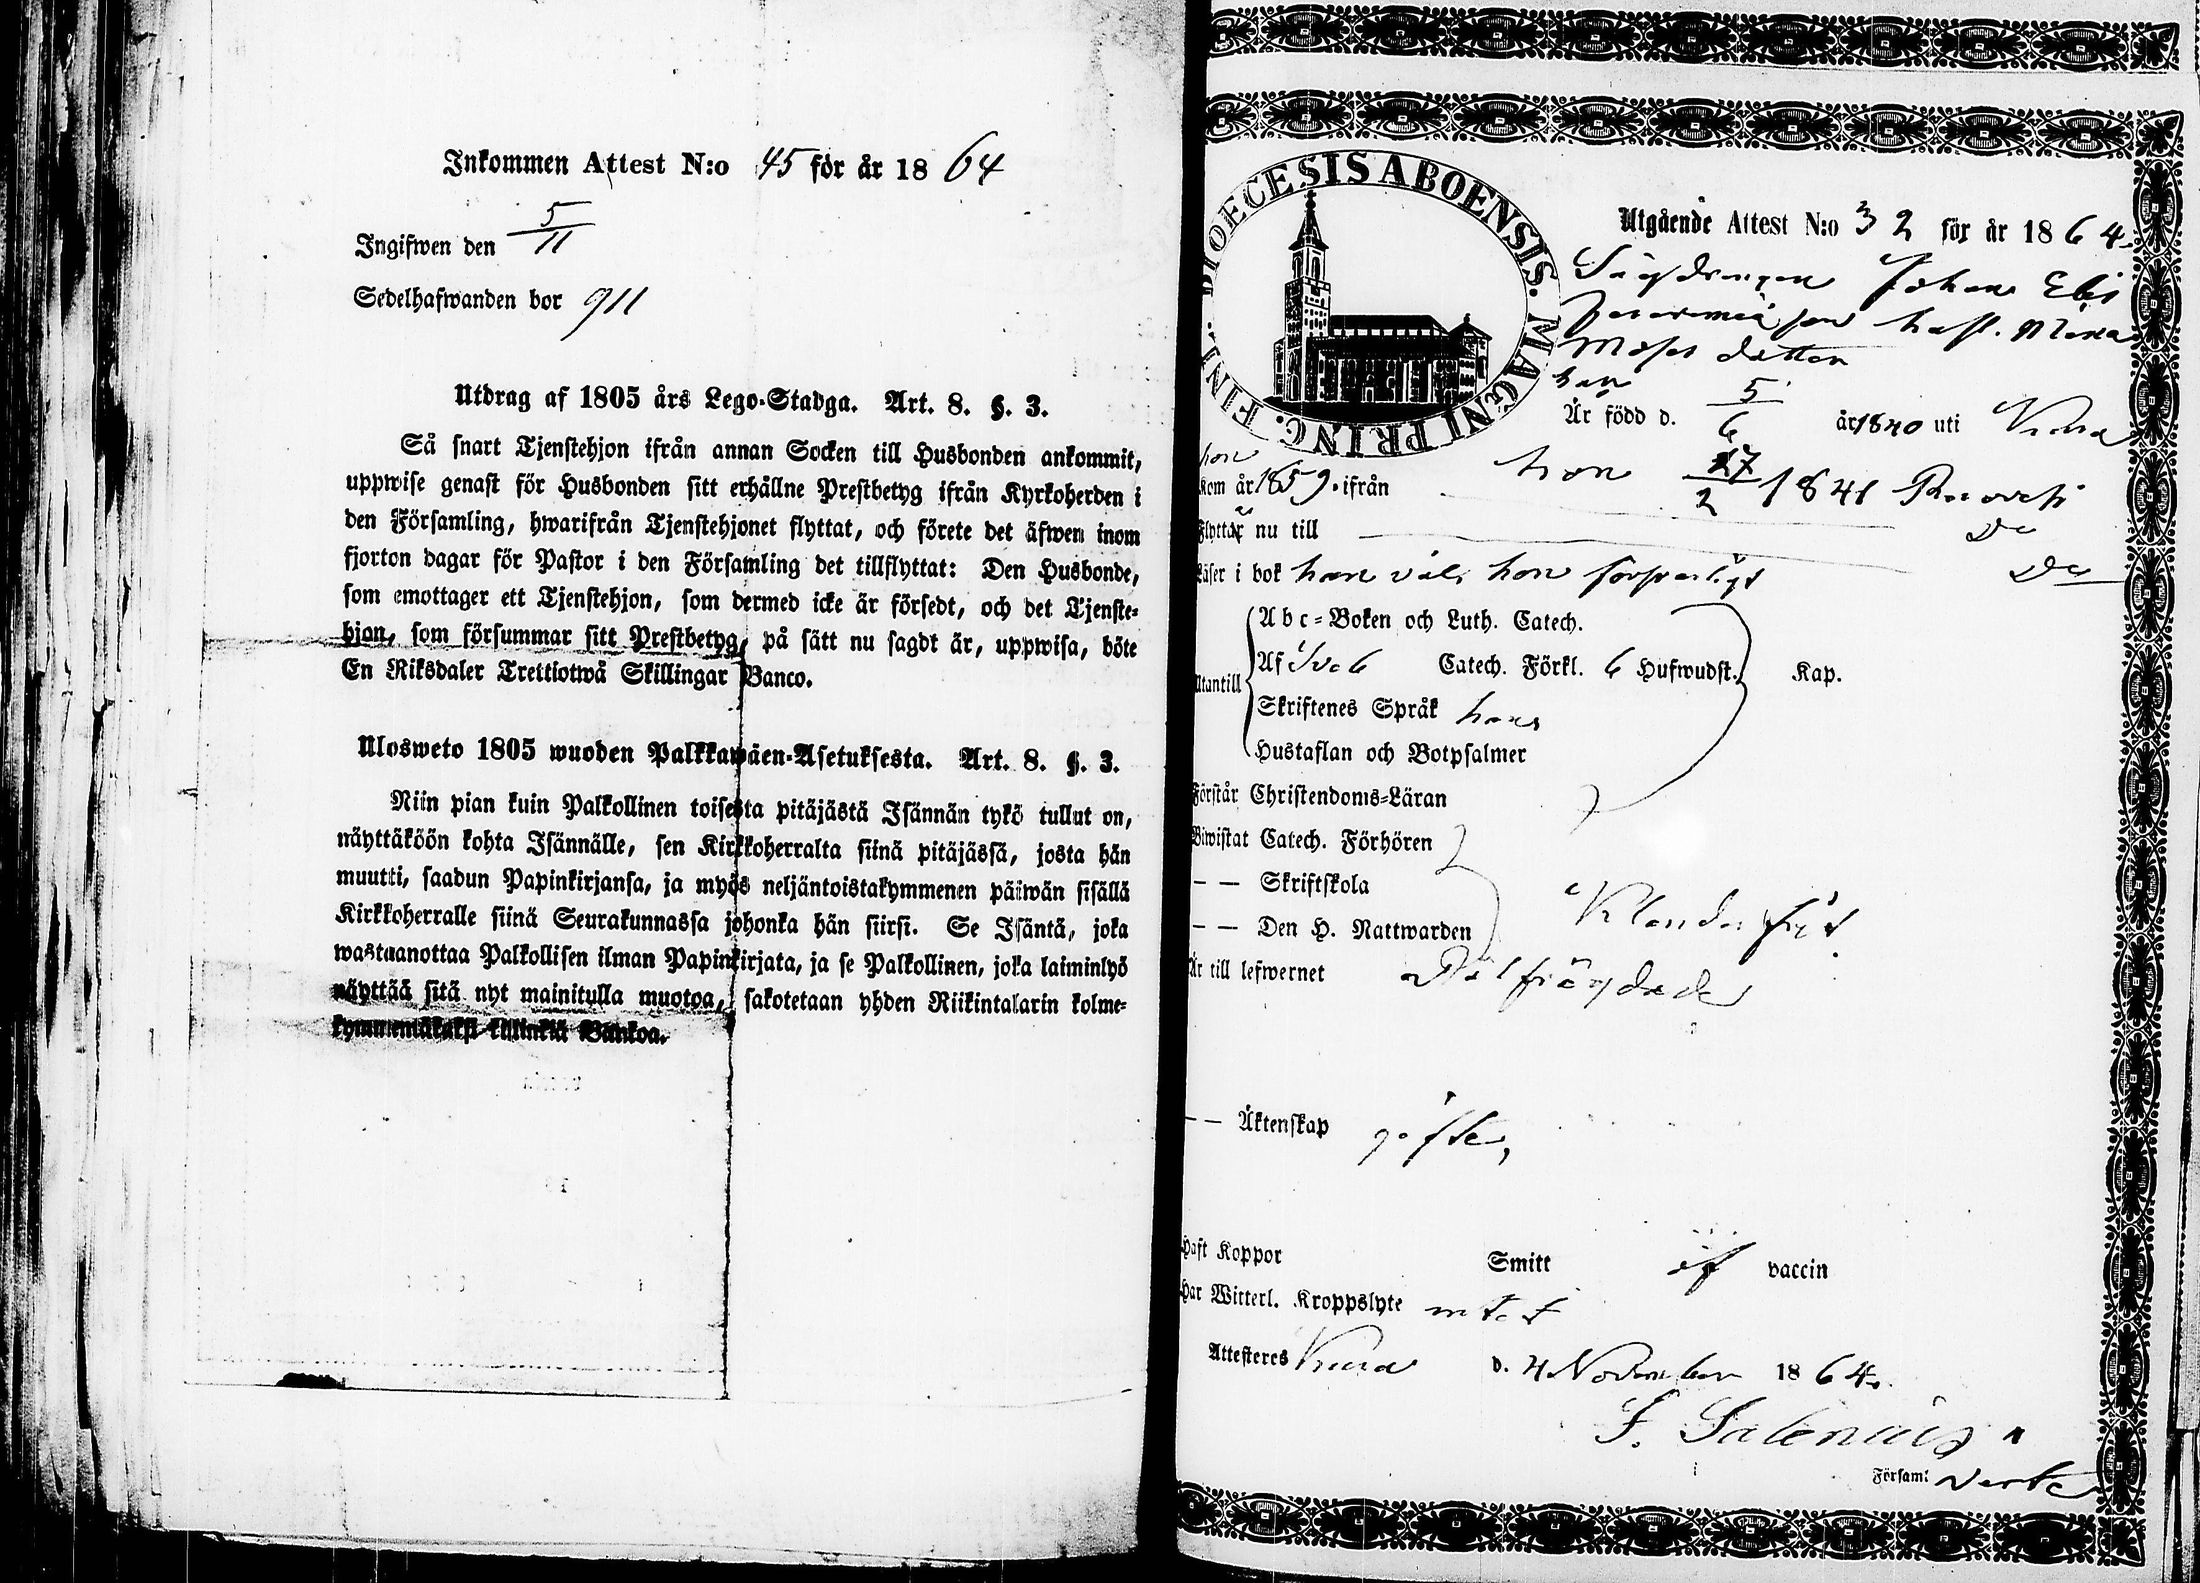 Inkommen Attest N:o 45 för år 1864
Ingifwen den 5/11
Sedelhafwanden bor 911
Utdrag af 1805 års Lego-Stadga. Art. 8. §. 3.
Så snart Tjenstehjon ifrån annan Socken till Husbonden ankommit,
uppwise genast för Husbonden sitt erhållne Prestbetyg ifrån Kyrkoherden i
den Församling, hwarifrån Tjenstehjonet flyttat, och förete det äfwen inom
fjorton dagar för Pastor i den Församling det tillflyttat: Den Husbonde,
som emottager ett Tjenstehjon, som dermed icke är försedt, och det Tjenste-
hjon, som försummar sitt Prestbetyg, på sätt nu sagdt är, uppwisa, böte
En Riksdaler Trettiotwå Skillingar Banco.
Ulosweto 1805 wuoden Palkkawäen-Asetuksesta. Art. 8. §. 3.
Niin pian kuin Palkollinen toisesta pitäjästä Isännän tykö tullut on,
näyttäköön kohta Isännälle, sen Kirkkoherralta siinä pitäjässä, josta hän
muutti, saadun Papinkirjansa, ja myös neljäntoistakymmenen päiwän sisällä
Kirkkoherralle siinä Seurakunnassa johonka hän siirsi. Se Isäntä, joka
wastaanottaa Palkollisen ilman Papinkirjata, ja se Palkollinen, joka laiminlyö
näyttää sitä nyt mainitulla muotoa, sakotetaan yhden Riikintalarin kolme-
kymmentäkaksi killinkiä Bankoa.
DIOECESIS ABOENSIS. MAGNI PRINC. FINL.
Utgående Attest N:o 32 för år 1864.
Johan
hust.
Moses dotter
han
Är född d. 5/6 år 1840 uti Kiura
hon
kom år 1859. ifrån hon 27/2 1841
Flyttar nu till
Läser i bok han väl, hon försvarligt
Abc-Boken och Luth. Catech.
Utantill Af Catech. Förkl. 6 Hufwudst. Kap.
Skriftenes Språk
Hustaflan och Botpsalmer
Förstår Christendoms-Läran
Biwistat Catech. Förhören
— — Skriftskola
— — Den H. Nattwarden Klanderfrit
Är till lefwernet Välfrägdade
— — Äktenskap gifte,
Haft Koppor Smitt af vaccin
Har Witterl. Kroppslyte intet
Attesteres d. 4 November 1864.
Församl